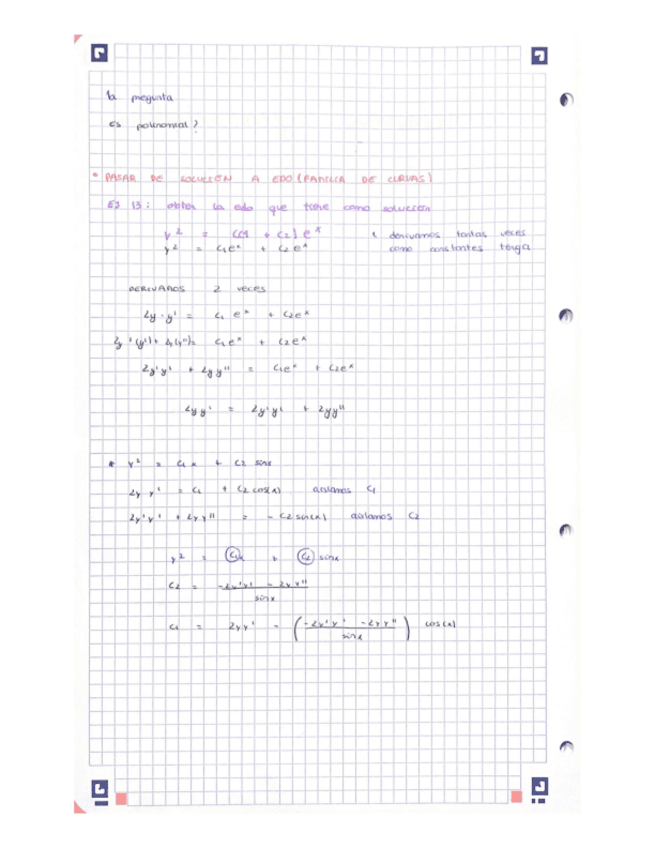 la pregunta
es polinomial?
* PASAR DE SOLUCIÓN A EDO (FAMILIA DE CURVAS)
EJ 13: obtén la edo que tiene como solución
y² = (C1 + C2) eˣ * derivamos tantas veces
y² = C1eˣ + C2eˣ como constantes tenga
DERIVAMOS 2 veces
2y·y' = C1 eˣ + C2eˣ
2y'(y') + 2y(y'') = C1eˣ + C2eˣ
2y'y' + 2yy'' = C1eˣ + C2eˣ
2yy' = 2y'y' + 2yy''
* y² = C1x + C2 sinx
2yy' = C1 + C2 cos(x) aislamos C1
2y'y' + 2yy'' = -C2 sin(x) aislamos C2
y² = C1x + C2 sinx
C2 = (-2y'y' - 2yy'') / sinx
C1 = 2yy' - ((-2y'y' - 2yy'') / sinx) cos(x)